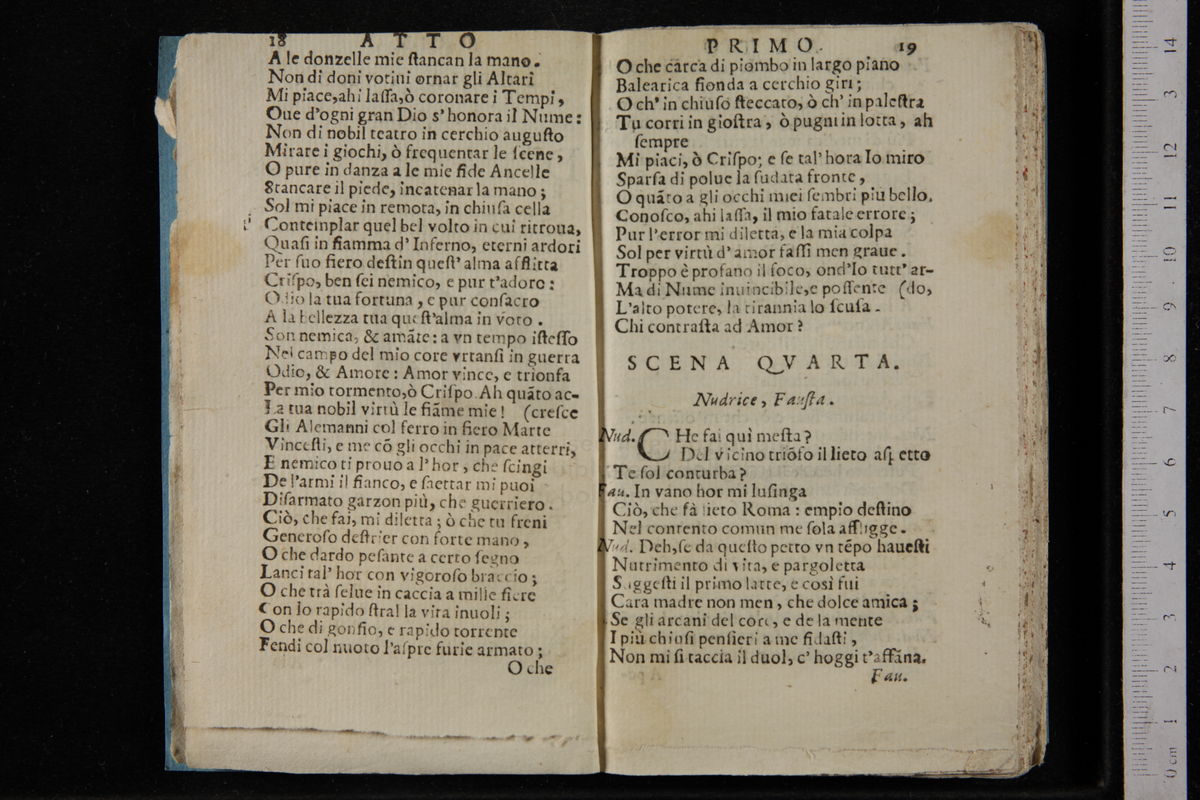 18 ATTO
A le donzelle mie ſtancan la mano.
Non di doni votiui ornar gli Altari
Mi piace,ahi laſſa,ò coronare i Tempi,
Oue d'ogni gran Dio s'honora il Nume:
Non di nobil teatro in cerchio auguſto
Mirare i giochi, ò frequentar le ſcene,
O pure in danza a le mie fide Ancelle
Stancare il piede, incatenar la mano;
Sol mi piace in remota, in chiuſa cella
Contemplar quel bel volto in cui ritroua,
Quaſi in fiamma d'Inferno, eterni ardori
Per ſuo fiero deſtin queſt'alma afflitta
Criſpo, ben ſei nemico, e pur t'adoro:
Odio la tua fortuna, e pur conſacro
A la bellezza tua queſt'alma in voto.
Son nemica, & amãte: a vn tempo iſteſſo
Nel campo del mio core vrtanſi in guerra
Odio, & Amore: Amor vince, e trionfa
Per mio tormento,ò Criſpo. Ah quãto ac-
La tua nobil virtù le fiãme mie! (creſce
Gli Alemanni col ferro in fiero Marte
Vinceſti, e me cõ gli occhi in pace atterri,
E nemico ti prouo a l'hor, che ſcingi
De l'armi il fianco, e ſaettar mi puoi
Diſarmato garzon più, che guerriero.
Ciò, che fai, mi diletta; ò che tu freni
Generoſo deſtrier con forte mano,
O che dardo peſante a certo ſegno
Lanci tal'hor con vigoroſo braccio;
O che trà ſelue in caccia a mille fiere
Con lo rapido ſtral la vita inuoli;
O che di gonfio, e rapido torrente
Fendi col nuoto l'aſpre furie armato;
O che
PRIMO. 19
O che carca di piombo in largo piano
Balearica fionda a cerchio giri;
O ch'in chiuſo ſteccato, ò ch'in paleſtra
Tu corri in gioſtra, ò pugni in lotta, ah
ſempre
Mi piaci, ò Criſpo; e ſe tal'hora Io miro
Sparſa di polue la ſudata fronte,
O quãto a gli occhi miei ſembri più bello.
Conoſco, ahi laſſa, il mio fatale errore;
Pur l'error mi diletta, e la mia colpa
Sol per virtù d'amor faſſi men graue.
Troppo è profano il foco, ond'Io tutt'ar-
Ma di Nume inuincibile,e poſſente (do,
L'alto potere, la tirannia lo ſcuſa.
Chi contraſta ad Amor?
SCENA QVARTA.
Nudrice, Fauſta.
Nud. CHe fai quì meſta?
Del vicino triõfo il lieto aſpetto
Te ſol conturba?
Fau. In vano hor mi luſinga
Ciò, che fà lieto Roma: empio deſtino
Nel contento comun me ſola affligge.
Nud. Deh,ſe da queſto petto vn tẽpo haueſti
Nutrimento di vita, e pargoletta
Suggeſti il primo latte, e così fui
Cara madre non men, che dolce amica;
Se gli arcani del core, e de la mente
I più chiuſi penſieri a me fidaſti,
Non mi ſi taccia il duol, c'hoggi t'affãna.
Fau.